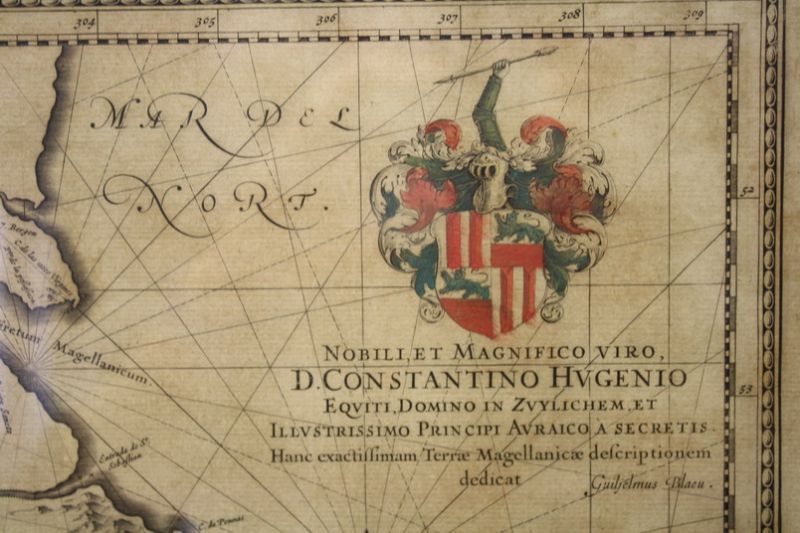 304 305 306 307 308 309
MAR DEL
NORT.
52
Fretum Magellanicum.
NOBILI, ET MAGNIFICO VIRO,
D. CONSTANTINO HVGENIO
EQVITI, DOMINO IN ZVYLICHEM, ET
ILLVSTRISSIMO PRINCIPI AVRAICO A SECRETIS.
Hanc exactissimam Terræ Magellanicæ descriptionem
dedicat
Guiljelmus Blaeu.
53
Entrada de St.
Sebastian
C. de Pennas